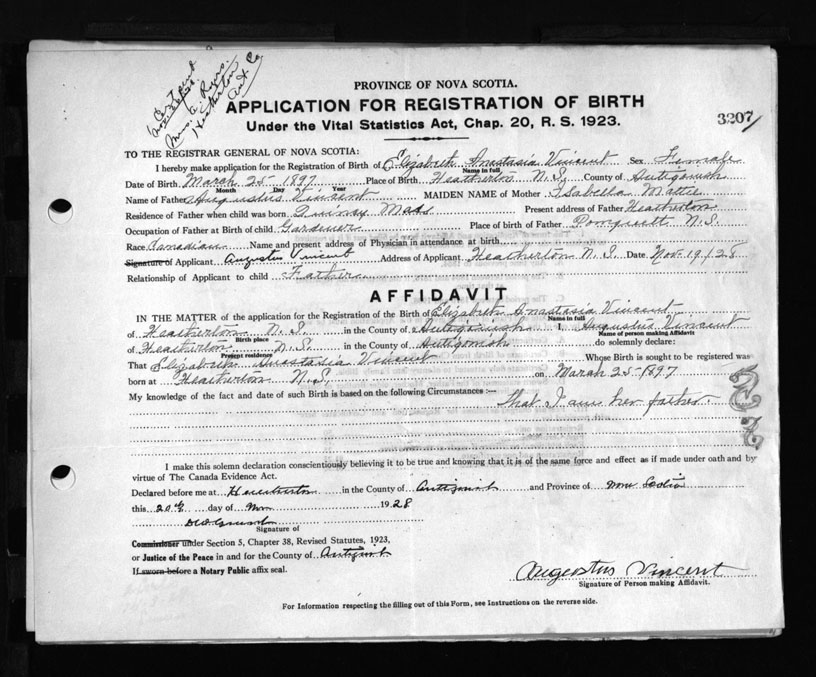 Cert. sent
Mrs. A. Ryers.
Heatherton
Ant. Co
PROVINCE OF NOVA SCOTIA.
APPLICATION FOR REGISTRATION OF BIRTH
Under the Vital Statistics Act, Chap. 20, R. S. 1923.
3207
TO THE REGISTRAR GENERAL OF NOVA SCOTIA:
I hereby make application for the Registration of Birth of Elizabeth Anastasia Vincent Sex Female
Name in full
Date of Birth March 25 1897 Place of Birth Heatherton N.S. County of Antigonish
Month Day Year
Name of Father Augustus Vincent MAIDEN NAME of Mother Isabella Mattie
Residence of Father when child was born Quincy Mass Present address of Father Heatherton
Occupation of Father at Birth of child Gardener Place of birth of Father Pomquett N.S.
Race Canadian Name and present address of Physician in attendance at birth
Signature of Applicant Augustus Vincent Address of Applicant Heatherton N.S. Date Nov. 19/28
Relationship of Applicant to child Father
AFFIDAVIT
IN THE MATTER of the application for the Registration of the Birth of Elizabeth Anastasia Vincent
Name in full
of Heatherton N.S. in the County of Antigonish I, Augustus Vincent
Birth place Name of person making Affidavit
of Heatherton N.S. in the County of Antigonish do solemnly declare:
Present residence
That Elizabeth Anastasia Vincent Whose Birth is sought to be registered was
born at Heatherton N.S. on March 25-1897
My knowledge of the fact and date of such Birth is based on the following Circumstances :— That I am her father.
I make this solemn declaration conscientiously believing it to be true and knowing that it is of the same force and effect as if made under oath and by
virtue of The Canada Evidence Act.
Declared before me at Heatherton in the County of Antigonish and Province of Nova Scotia
this 20th day of Nov 1928
Signature of
Commissioner under Section 5, Chapter 38, Revised Statutes, 1923,
or Justice of the Peace in and for the County of Antigonish
If sworn before a Notary Public affix seal.
Augustus Vincent
Signature of Person making Affidavit.
For Information respecting the filling out of this Form, see Instructions on the reverse side.